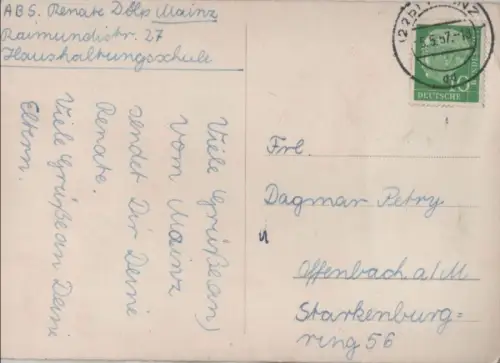 ABS. Renate Döbp Mainz
Raimundistr. 27
Haushaltungsschule
Viele Grüße (an)
vom Mainz
sendet Dir Deine
Renate.
Viele Grüße an Deine
Eltern.
(22b) MAINZ
5.57.-18
DEUTSCHE
10
Frl.
Dagmar Petry
Offenbach a/M
Starkenburg=
ring 56